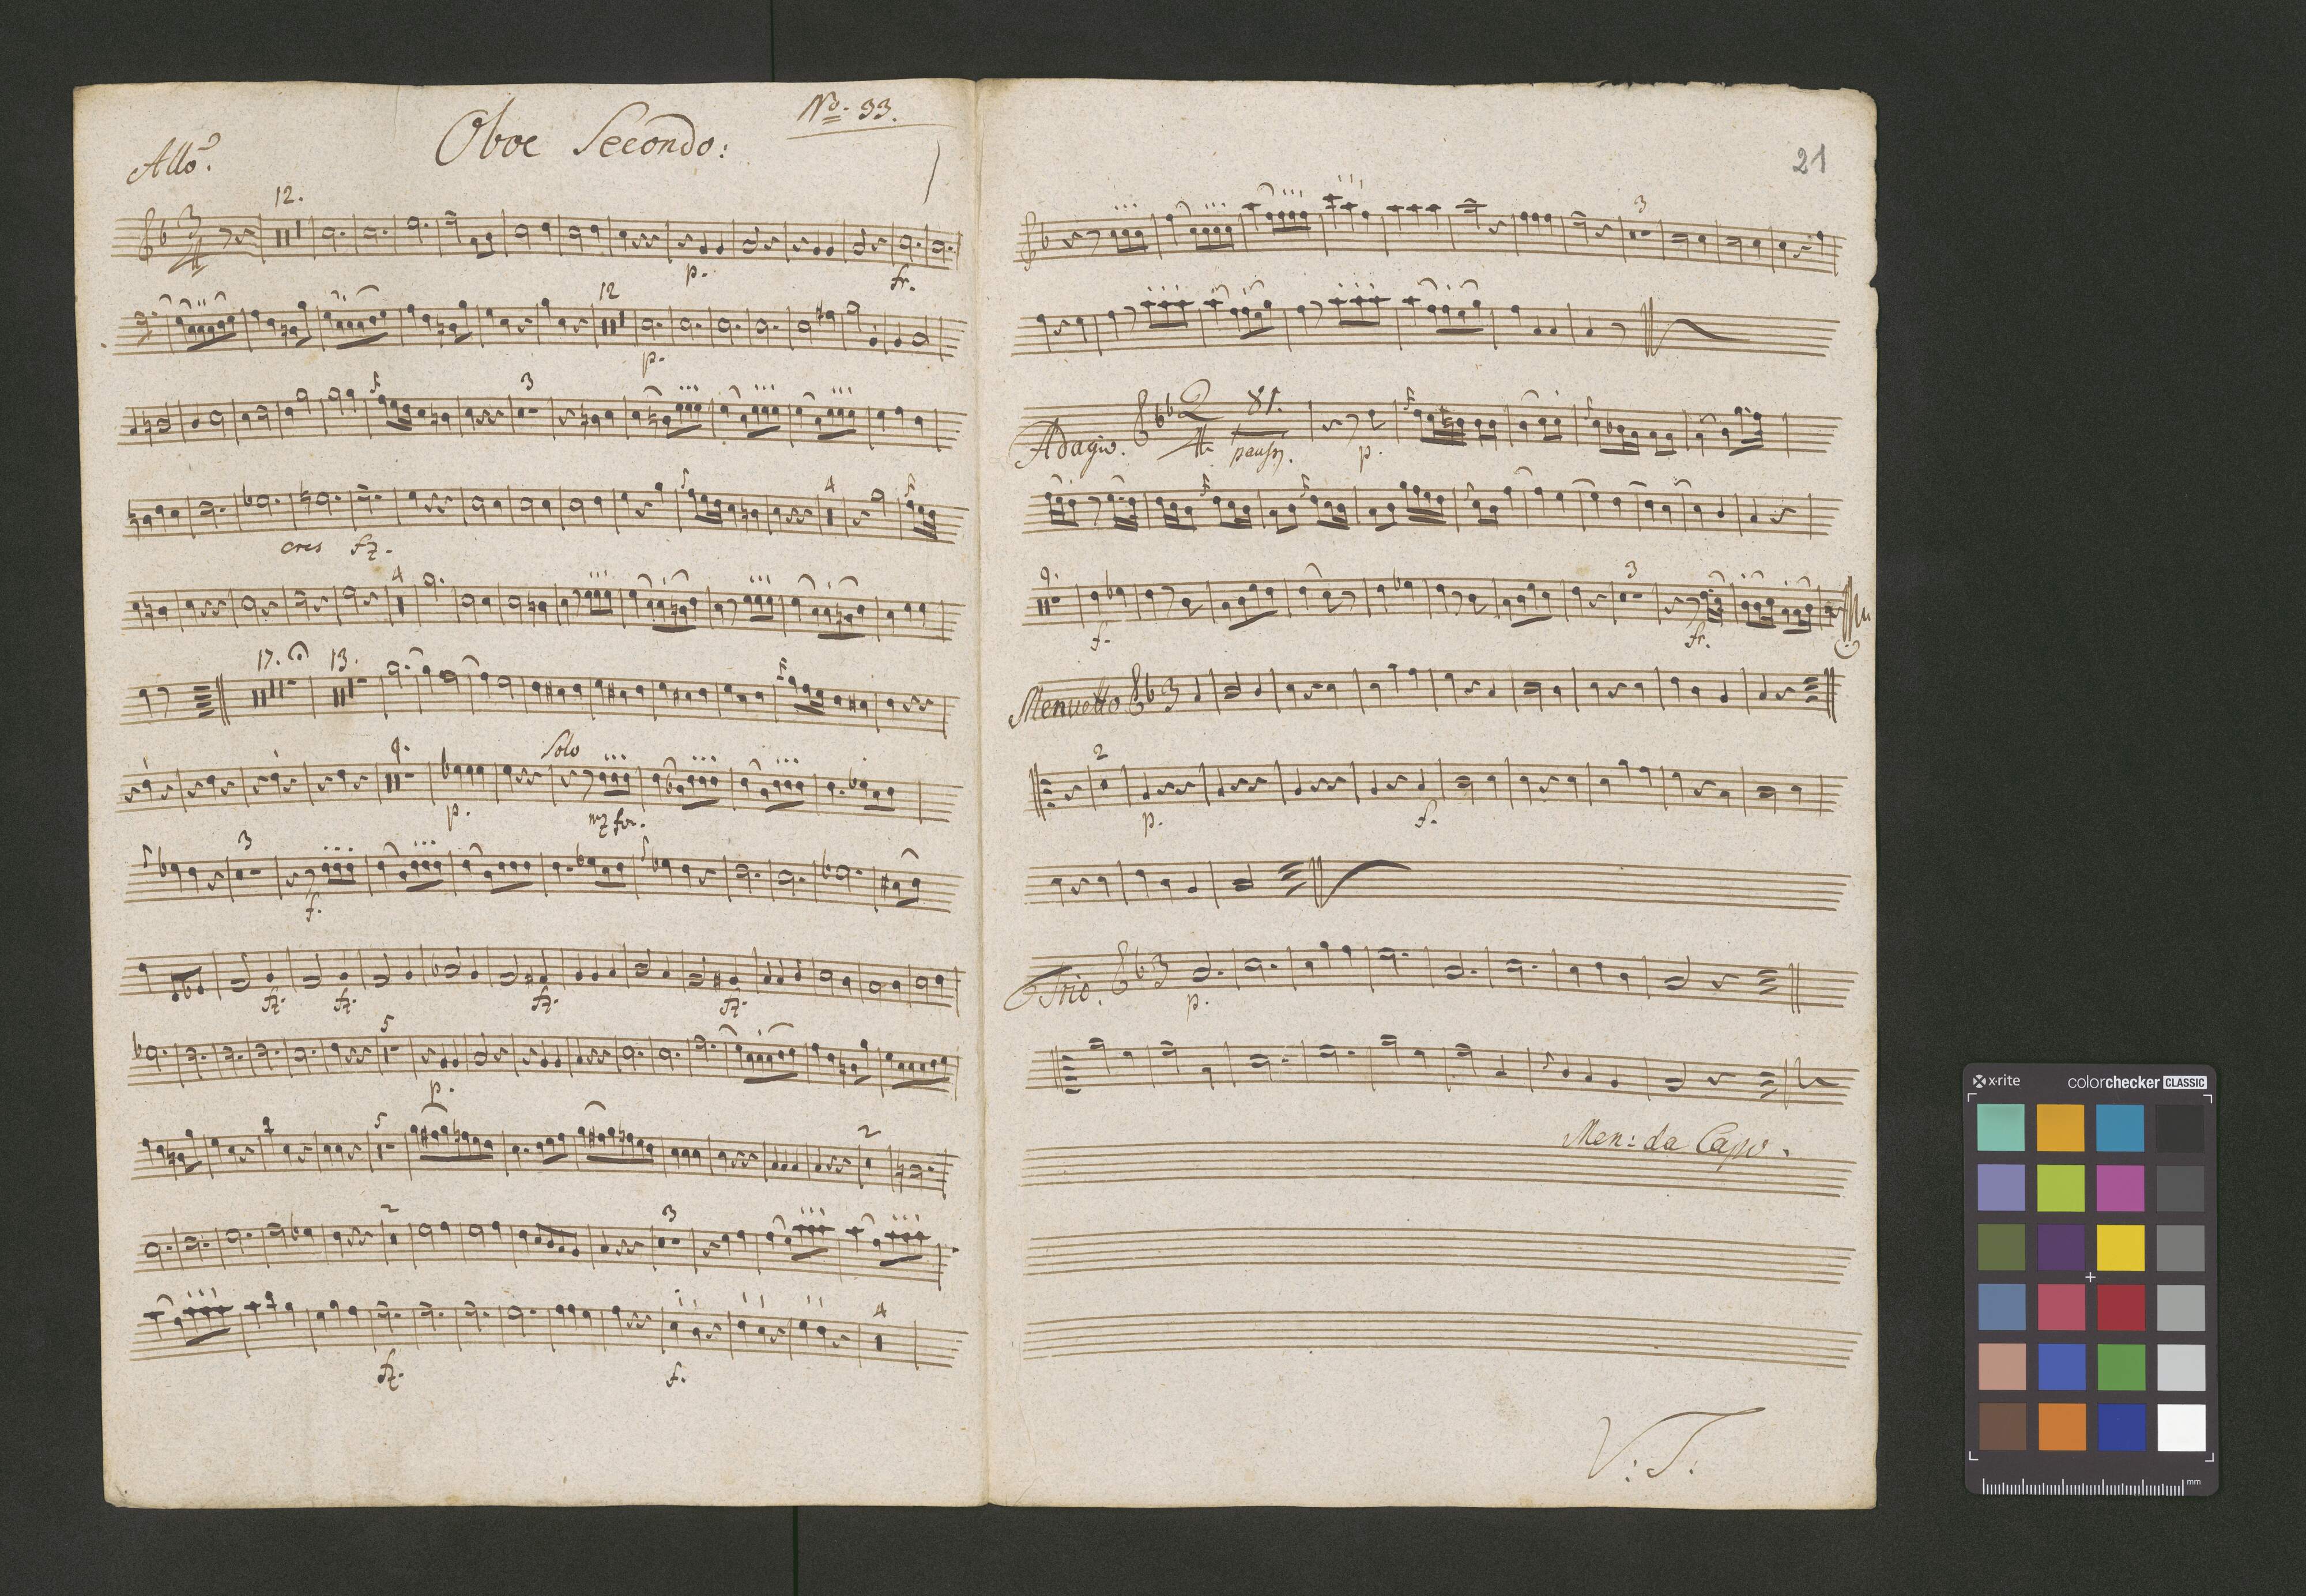 Oboe Secondo:
No. 33.
Allo.
12.
3
4
p.
fr.
12
p.
3
cres
fz.
4
4
17.
13.
9.
Solo
p.
mz for.
3
f.
fz.
fz.
fz.
fz.
5
p.
5
2
2
3
fz.
f.
4
21
3
Adagio.
2
4
81.
p.
9.
3
f.
fr.
Menuetto
3
2
p.
f.
Trio.
3
p.
Men: da Capo.
V:S:
x-rite
colorchecker CLASSIC
mm